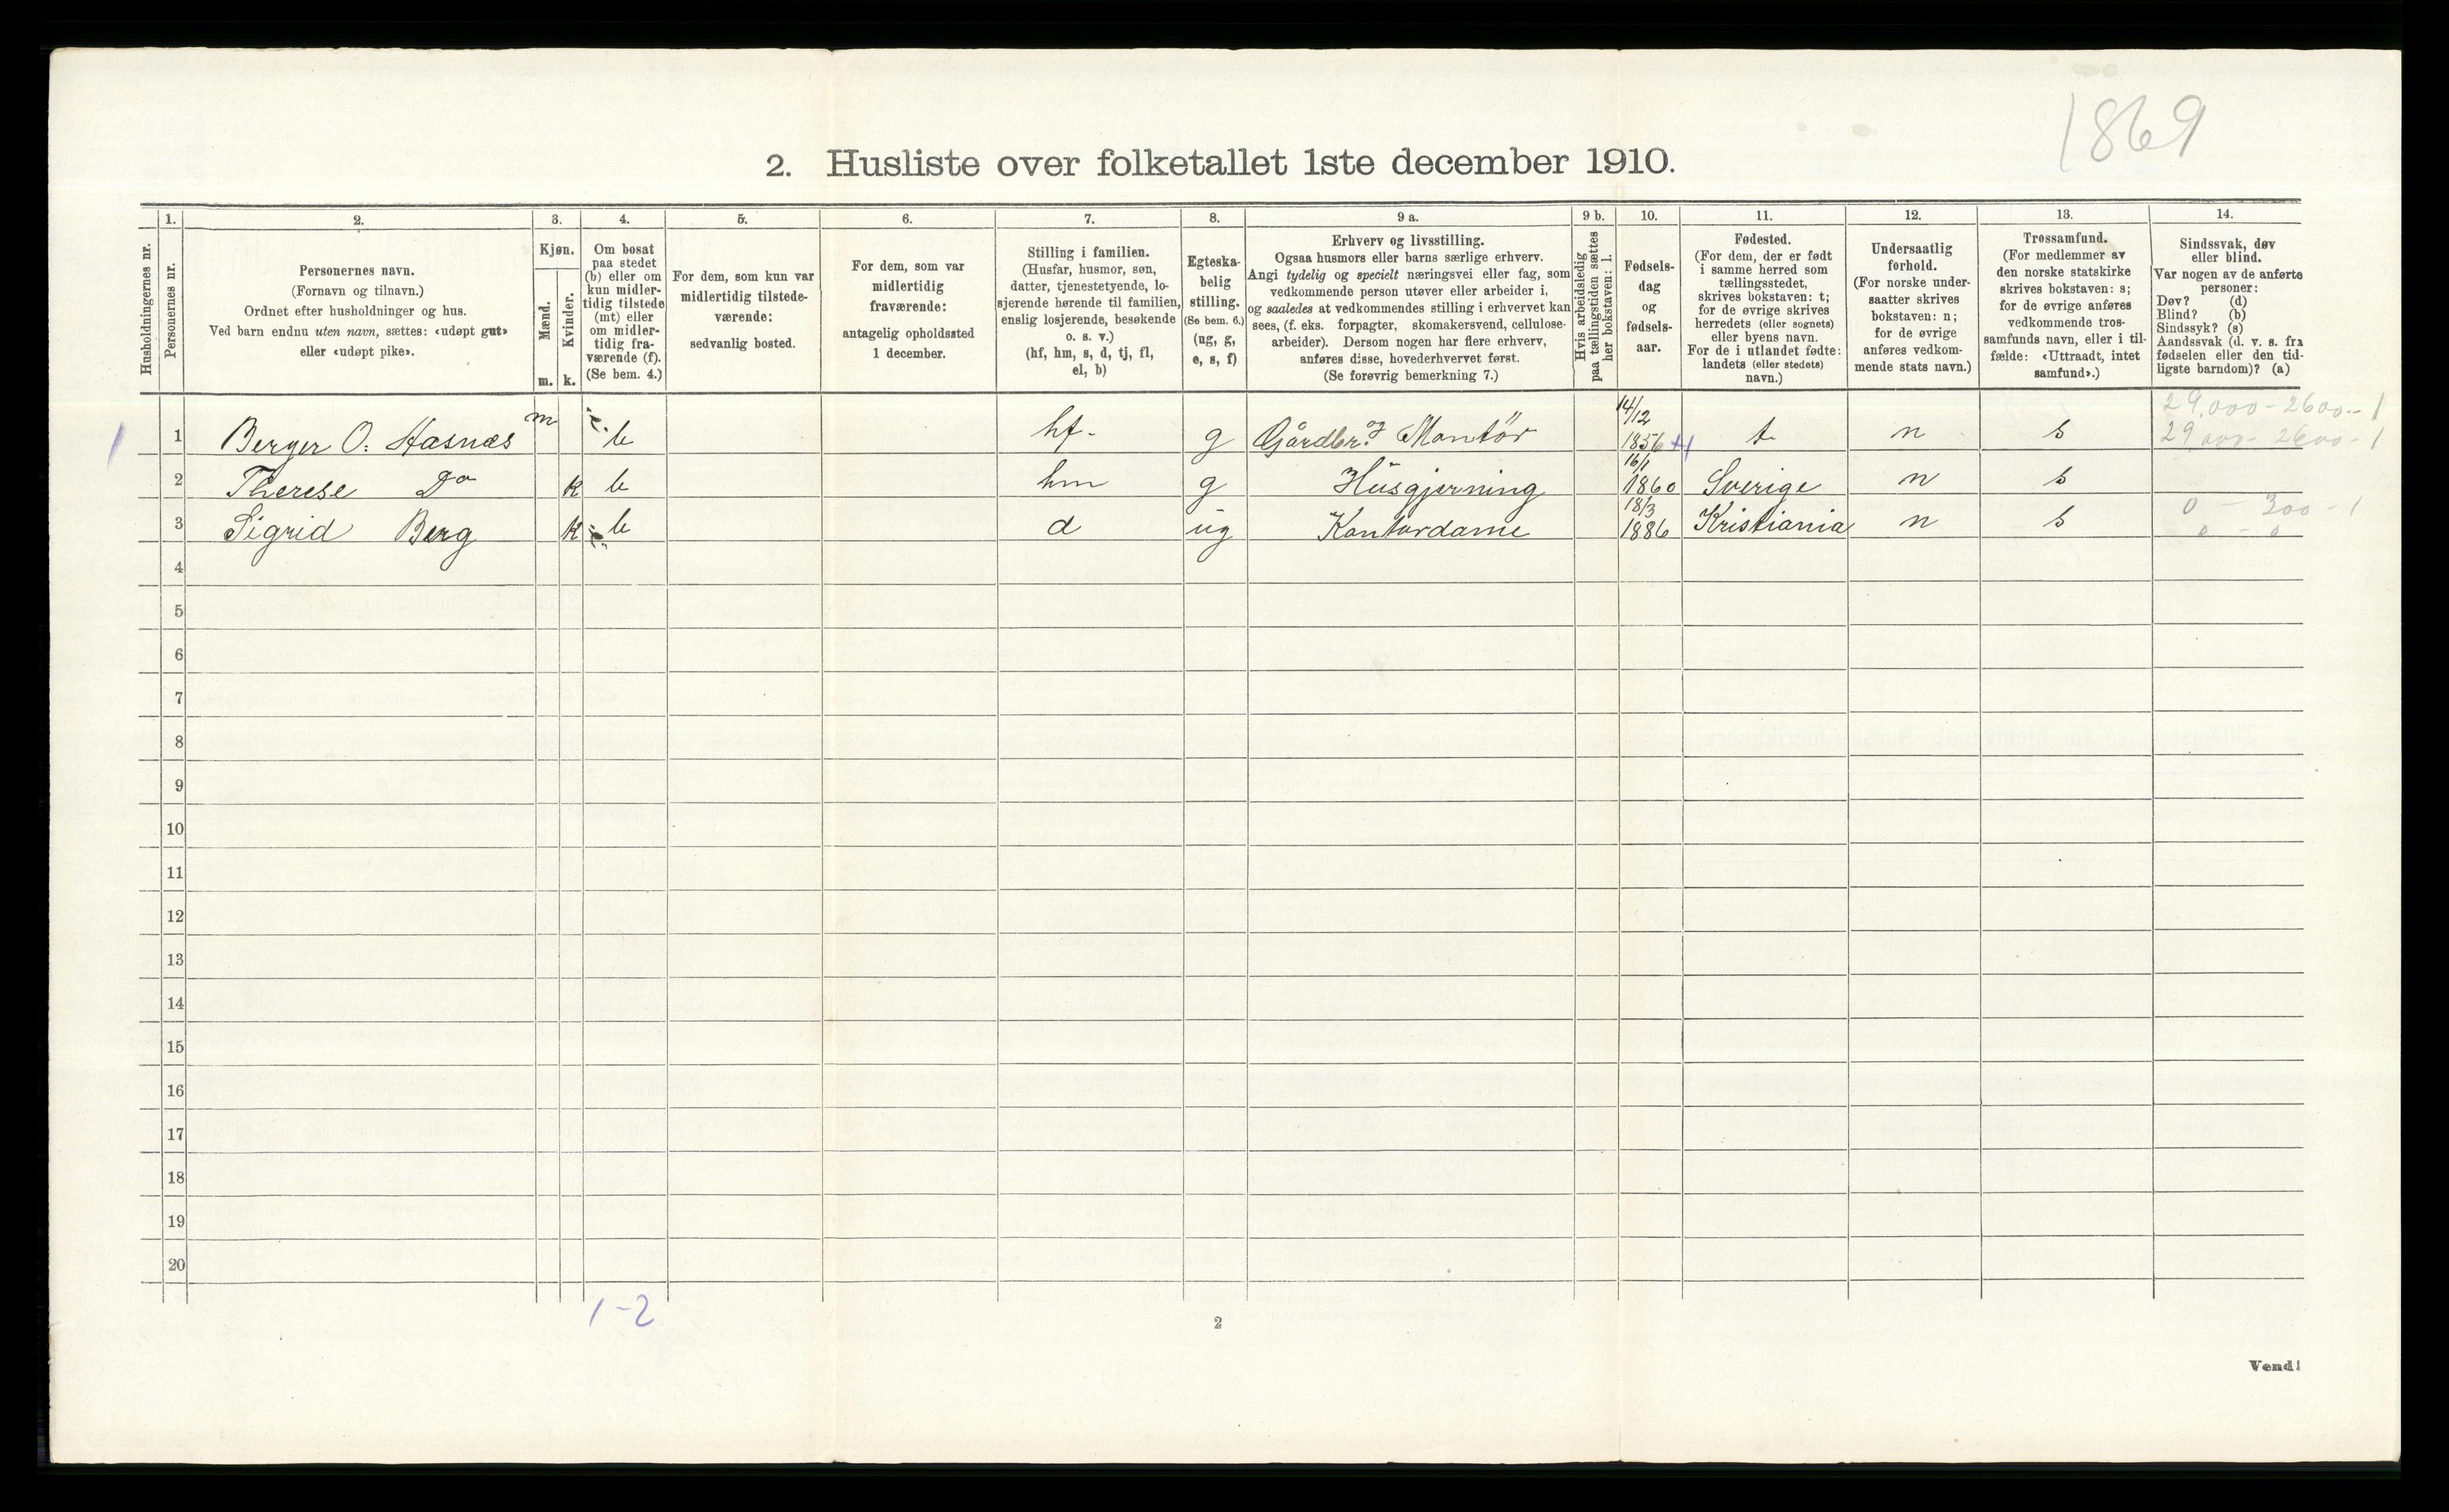 1869
2. Husliste over folketallet 1ste december 1910.
Husholdningernes nr.
1.
Personernes nr.
2.
Personernes navn.
(Fornavn og tilnavn.)
Ordnet efter husholdninger og hus.
Ved barn endnu uten navn, sættes: «udøpt gut»
eller «udøpt pike».
3.
Kjøn.
Mænd.
Kvinder.
m. k.
4.
Om bosat
paa stedet
(b) eller om
kun midler-
tidig tilstede
(mt) eller
om midler-
tidig fra-
værende (f).
(Se bem. 4.)
5.
For dem, som kun var
midlertidig tilstede-
værende:
sedvanlig bosted.
6.
For dem, som var
midlertidig
fraværende:
antagelig opholdssted
1 december.
7.
Stilling i familien.
(Husfar, husmor, søn,
datter, tjenestetyende, lo-
sjerende hørende til familien,
enslig losjerende, besøkende
o. s. v.)
(hf, hm, s, d, tj, fl,
el, b)
8.
Egteska-
belig
stilling.
(Se bem. 6.)
(ug, g,
e, s, f)
9 a.
Erhverv og livsstilling.
Ogsaa husmors eller barns særlige erhverv.
Angi tydelig og specielt næringsvei eller fag, som
vedkommende person utøver eller arbeider i,
og saaledes at vedkommendes stilling i erhvervet kan
sees, (f. eks. forpagter, skomakersvend, cellulose-
arbeider). Dersom nogen har flere erhverv,
anføres disse, hovederhvervet først.
(Se forøvrig bemerkning 7.)
9 b.
Hvis arbeidsledig
paa tællingstiden sættes
her bokstaven: l.
10.
Fødsels-
dag
og
fødsels-
aar.
11.
Fødested.
(For dem, der er født
i samme herred som
tællingsstedet,
skrives bokstaven: t;
for de øvrige skrives
herredets (eller sognets)
eller byens navn.
For de i utlandet fødte:
landets (eller stedets)
navn.)
12.
Undersaatlig
forhold.
(For norske under-
saatter skrives
bokstaven: n;
for de øvrige
anføres vedkom-
mende stats navn.)
13.
Trossamfund.
(For medlemmer av
den norske statskirke
skrives bokstaven: s;
for de øvrige anføres
vedkommende tros-
samfunds navn, eller i til-
fælde: «Uttraadt, intet
samfund».)
14.
Sindssvak, døv
eller blind.
Var nogen av de anførte
personer:
Døv? (d)
Blind? (b)
Sindssyk? (s)
Aandssvak (d. v. s. fra
fødselen eller den tid-
ligste barndom)? (a)
29,000 - 2600 - 1
1 1 Berger O. Hasnæs m b hf. g Gårdbr. og Montör 14/12 1856 t. n s 29,000 - 2600 - 1
2 Therese Do k b hm g Husgjerning 16/1 1860 Sverige n s
0 - 300 - 1
3 Sigrid Berg k b d ug Kontordame 18/3 1886 Kristiania n s 0 - 0
4
5
6
7
8
9
10
11
12
13
14
15
16
17
18
19
20
1-2
2
Vend!